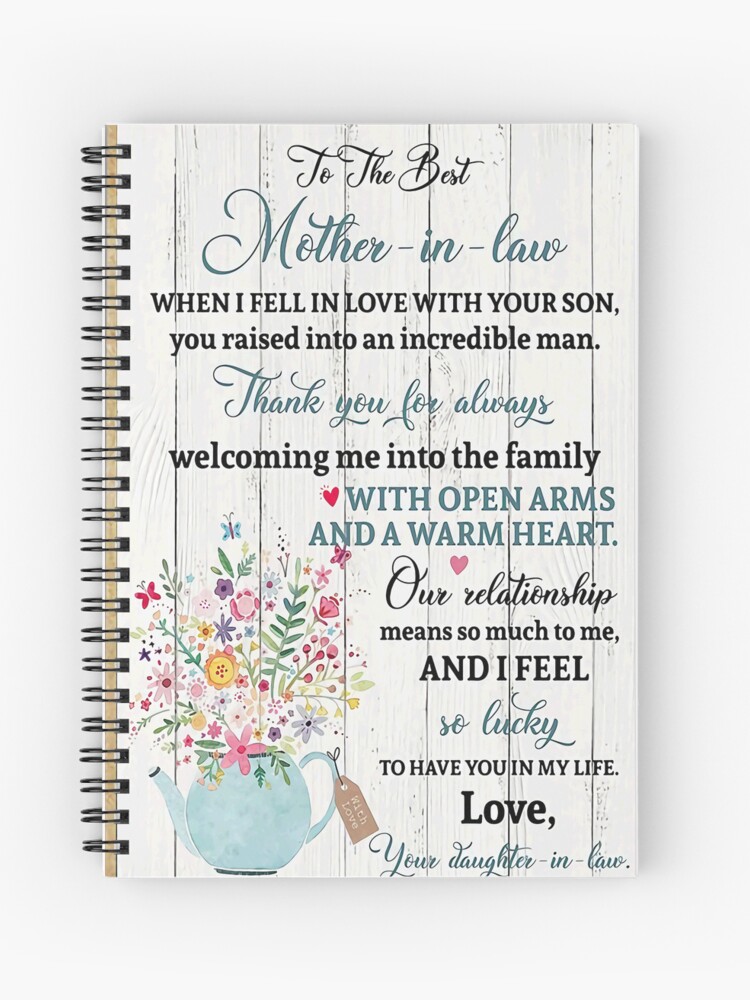 To The Best
Mother-in-law
WHEN I FELL IN LOVE WITH YOUR SON,
you raised into an incredible man.
Thank you for always
welcoming me into the family
WITH OPEN ARMS
AND A WARM HEART.
Our relationship
means so much to me,
AND I FEEL
so lucky
TO HAVE YOU IN MY LIFE.
Love,
Your daughter-in-law.
With
Love